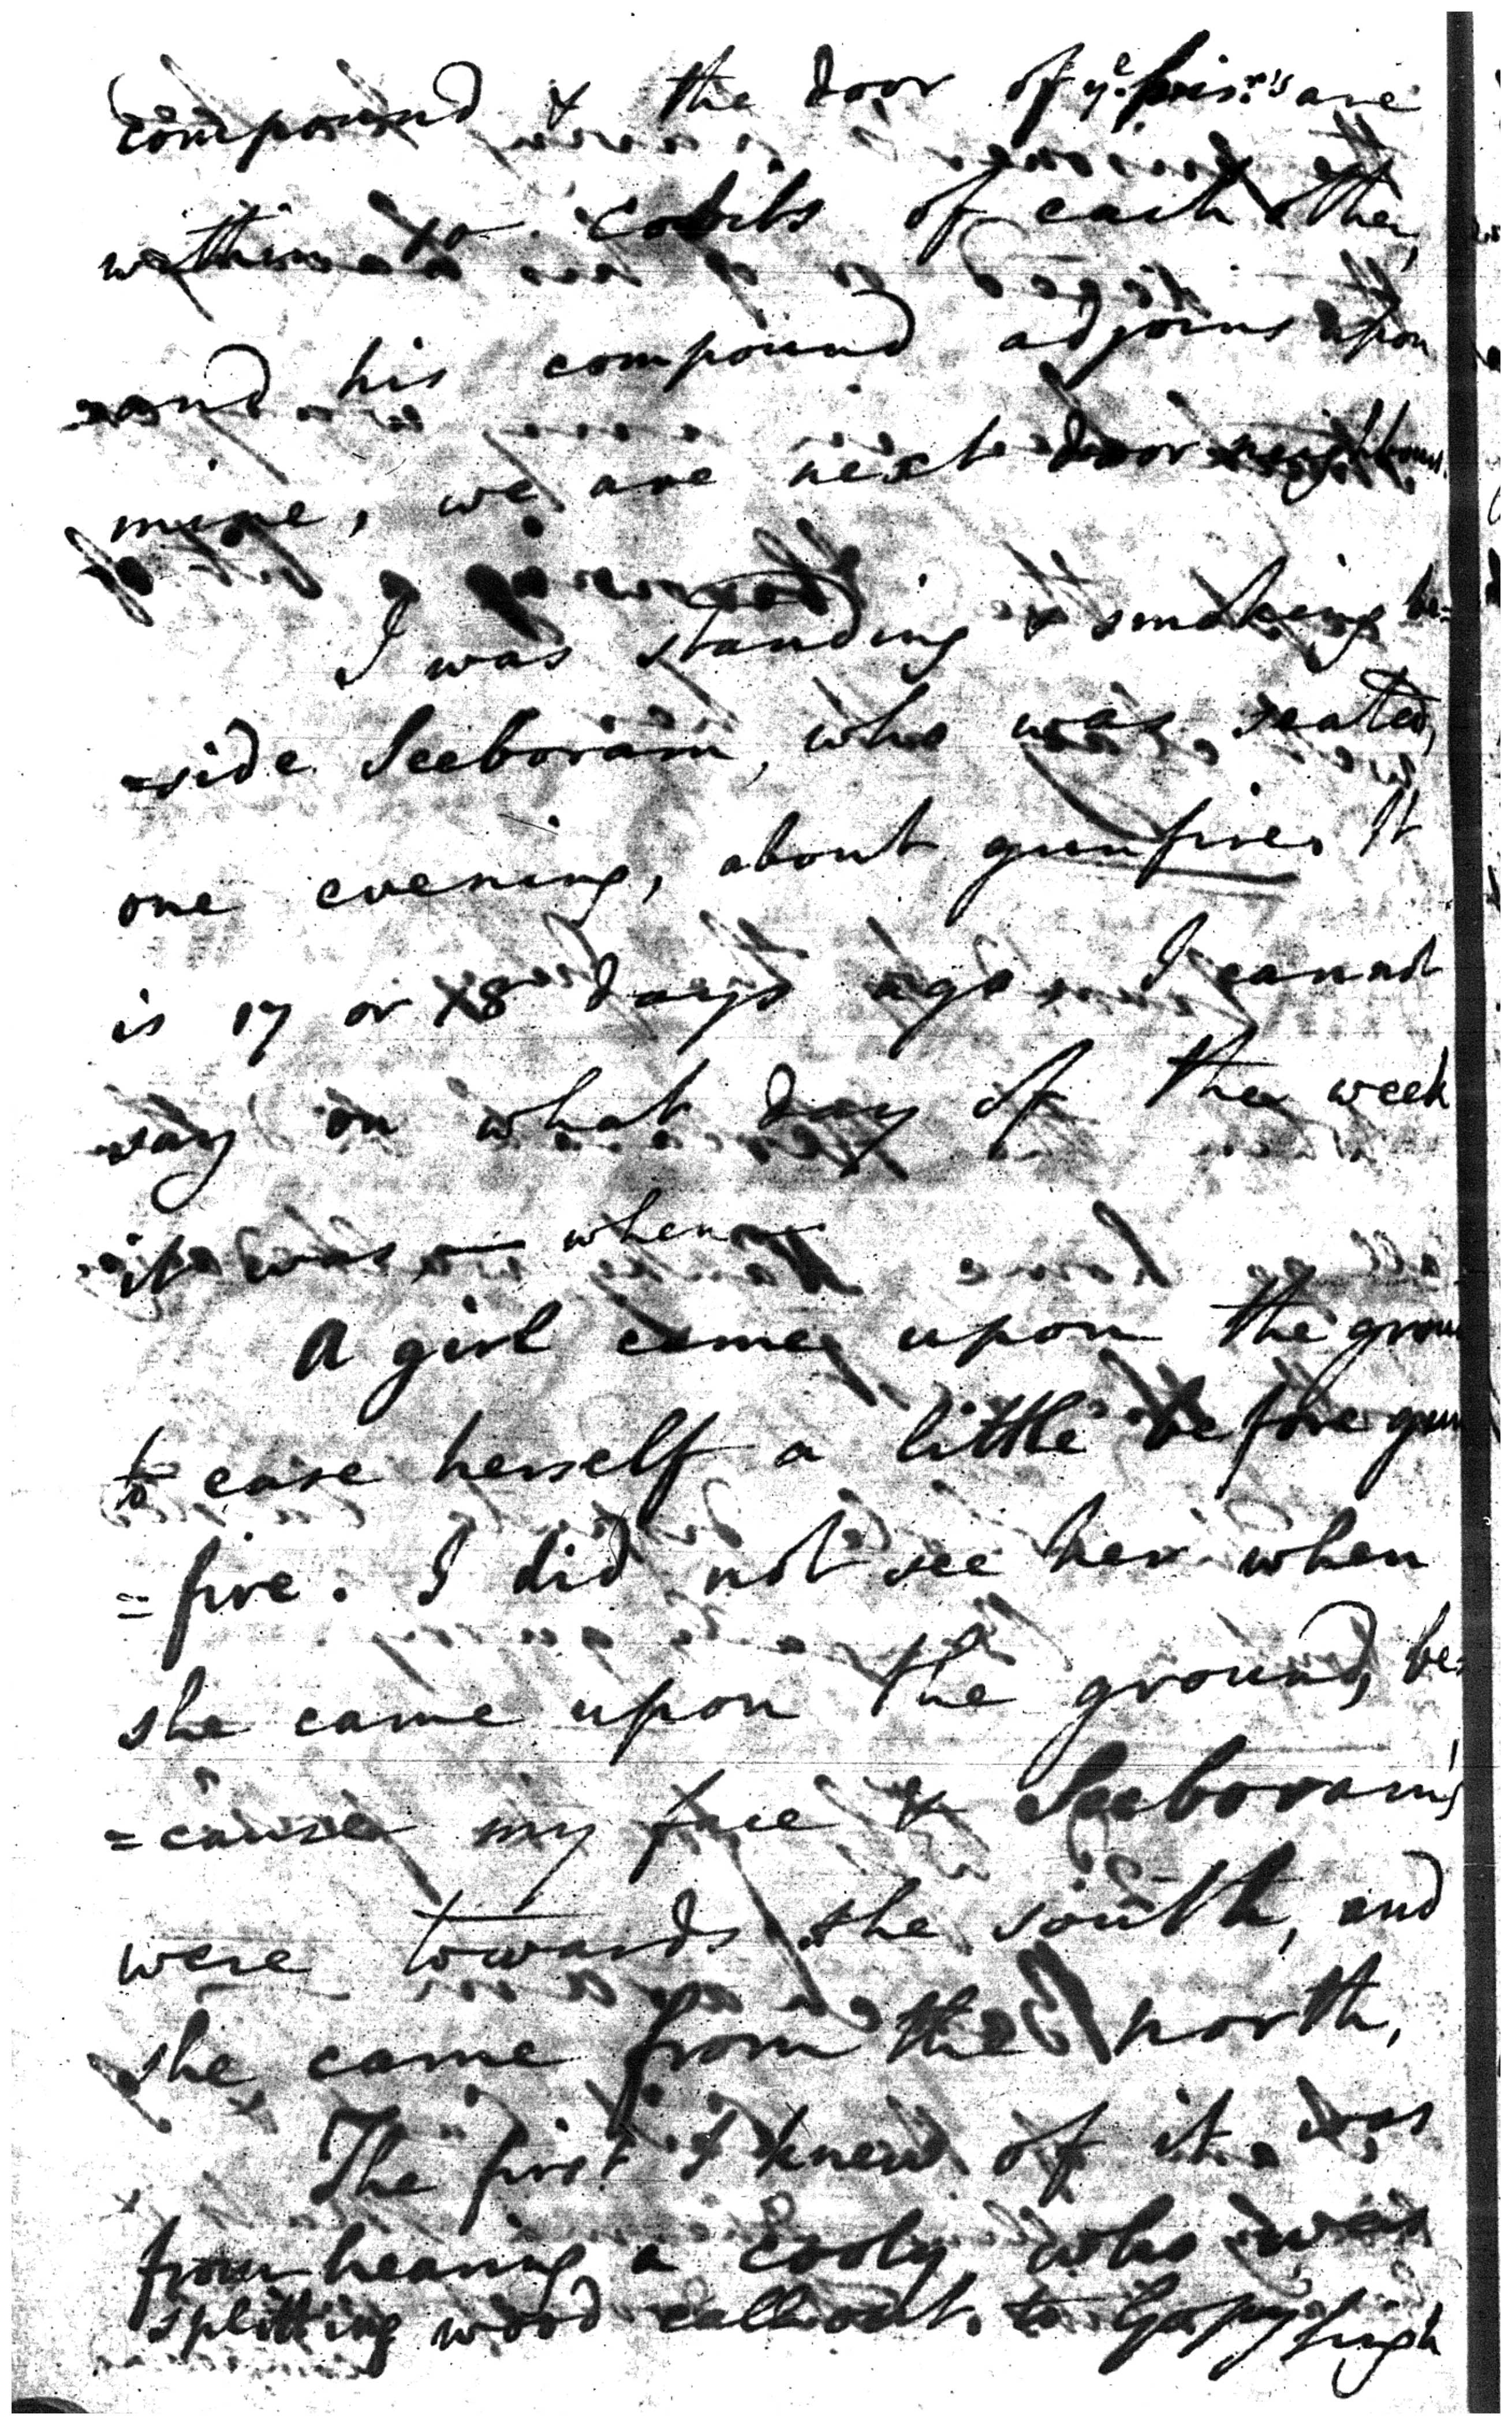 compound & the door of yᵉ. Prisʳ.'s are
within 10 Cobits of each other,
and his compound adjoins upon
mine, we are next door neighbours.
I was standing & smoking be=
=side Seeboram, who was seated,
one evening, about gunfire. It
is 17 or 18 days ago. I cannot
say on what day of the week
it was — when
A girl came upon the groun
to ease herself a little before gun
=fire. I did not see her when
she came upon the ground, be=
=cause my face & Seeboram's
were towards the south, and
she came from the north.
The first I knew of it was
from hearing a Cooly, who was
splitting wood call out to Gopy Singh